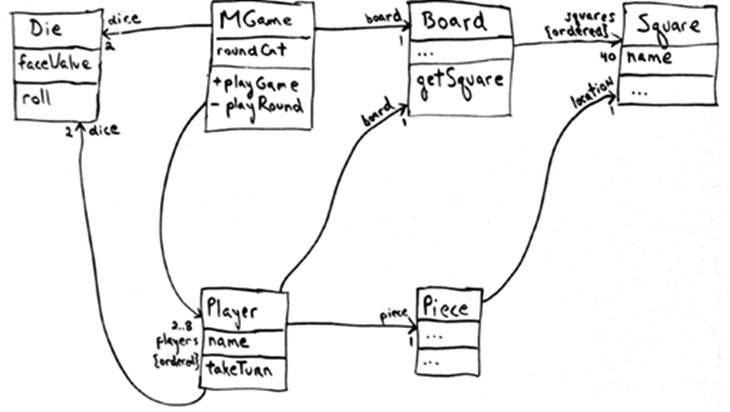 Die
faceValue
roll
dice
2
MGame
roundCnt
+playGame
- playRound
board
1
Board
...
getSquare
squares
{ordered}
40
Square
name
...
2 dice
board
1
location
1
2..8
players
{ordered}
Player
name
takeTurn
piece
1
Piece
...
...